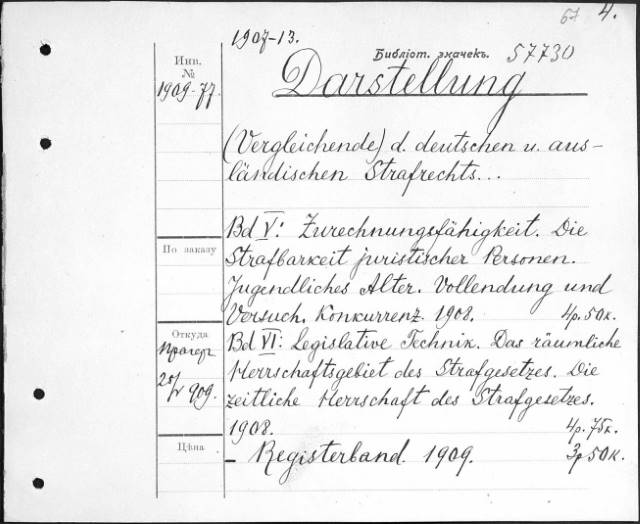 57 4.
1907-13.
Библіот. значекъ. 57730
Инв.
№
1909-77.
Darstellung
(Vergleichende) d. deutschen u. aus-
ländischen Strafrechts...
Bd V: Zurechnungsfähigkeit. Die
По заказу
Strafbarkeit juristischer Personen.
Jugendliches Alter. Vollendung und
Versuch. Konkurrenz. 1908. 4р. 50к.
Откуда
Прагеръ
25/V 909.
Bd VI: Legislative Technik. Das räumliche
Herrschaftsgebiet des Strafgesetzes. Die
zeitliche Herrschaft des Strafgesetzes.
1908. 4р. 75к.
Цѣна
— Registerband. 1909. 3р 50к.